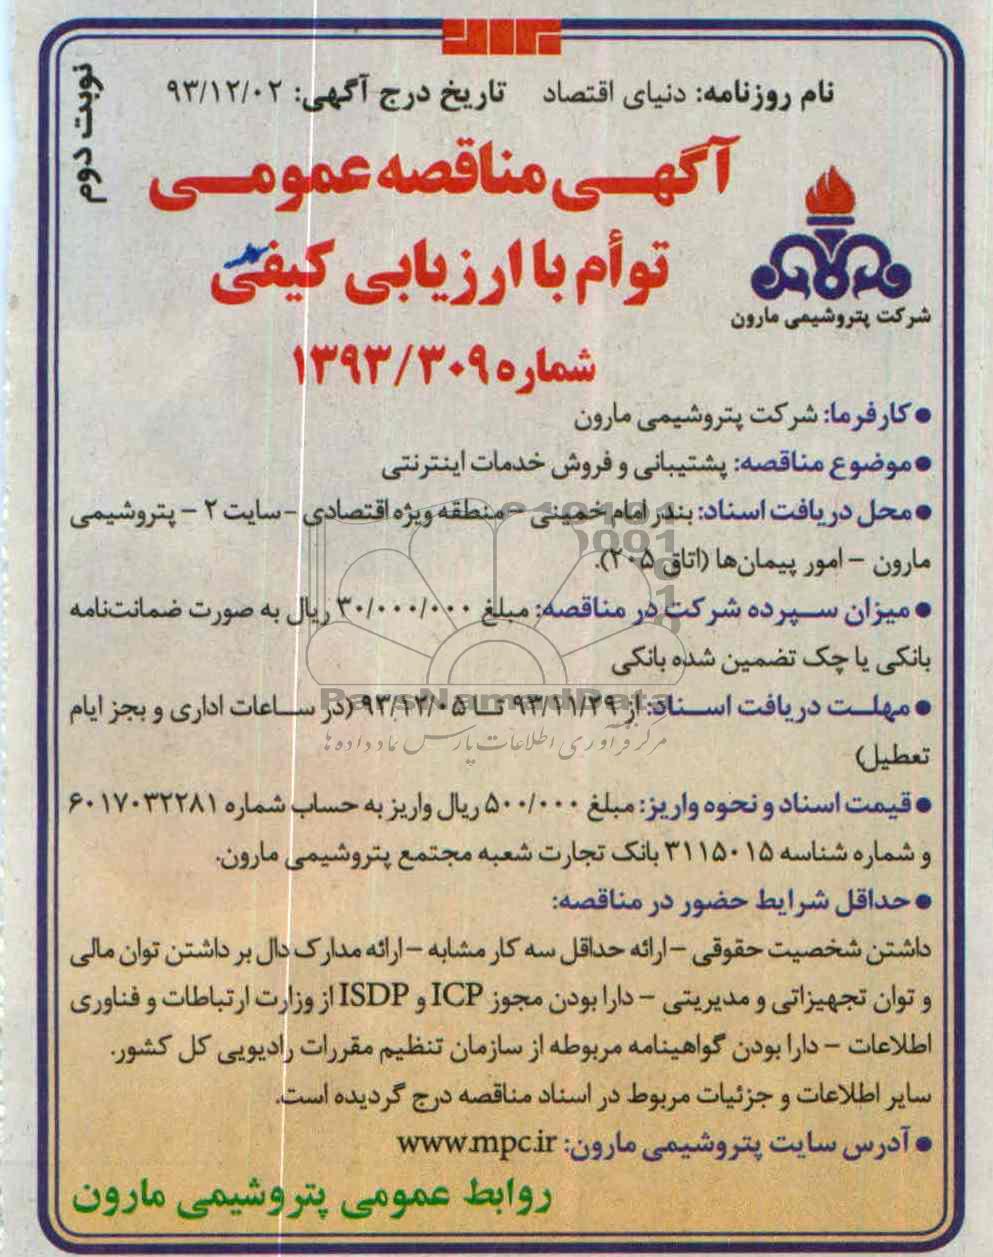 نام روزنامه: دنیای اقتصاد تاریخ درج آگهی: ۹۳/۱۲/۰۲
نوبت دوم
آگهی مناقصه عمومی
توأم با ارزیابی کیفی
شرکت پتروشیمی مارون
شماره ۱۳۹۳/۳۰۹
● کارفرما: شرکت پتروشیمی مارون
● موضوع مناقصه: پشتیبانی و فروش خدمات اینترنتی
● محل دریافت اسناد: بندر امام خمینی - منطقه ویژه اقتصادی - سایت ۲ - پتروشیمی
مارون - امور پیمان‌ها (اتاق ۲۰۵).
● میزان سپرده شرکت در مناقصه: مبلغ ۳۰/۰۰۰/۰۰۰ ریال به صورت ضمانت‌نامه
بانکی یا چک تضمین شده بانکی
ParsNamadData
● مهلت دریافت اسناد: از ۹۳/۱۱/۲۹ تا ۹۳/۱۲/۰۵ (در ساعات اداری و بجز ایام
مرکز فرآوری اطلاعات پارس نماد داده ها
تعطیل)
● قیمت اسناد و نحوه واریز: مبلغ ۵۰۰/۰۰۰ ریال واریز به حساب شماره ۶۰۱۷۰۳۲۲۸۱
و شماره شناسه ۳۱۱۵۰۱۵ بانک تجارت شعبه مجتمع پتروشیمی مارون.
● حداقل شرایط حضور در مناقصه:
داشتن شخصیت حقوقی - ارائه حداقل سه کار مشابه - ارائه مدارک دال بر داشتن توان مالی
و توان تجهیزاتی و مدیریتی - دارا بودن مجوز ICP و ISDP از وزارت ارتباطات و فناوری
اطلاعات - دارا بودن گواهینامه مربوطه از سازمان تنظیم مقررات رادیویی کل کشور.
سایر اطلاعات و جزئیات مربوط در اسناد مناقصه درج گردیده است.
● آدرس سایت پتروشیمی مارون: www.mpc.ir
روابط عمومی پتروشیمی مارون